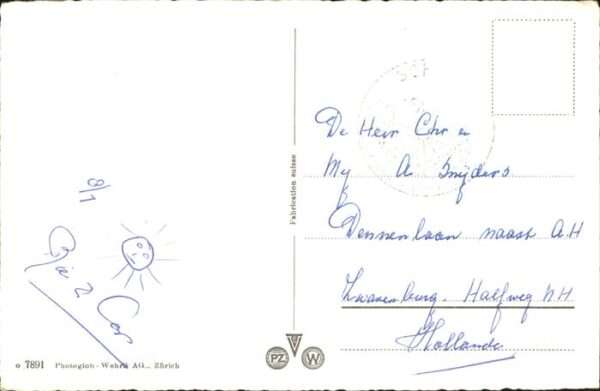 8/1
De Heer Chr en
Mej A Snijders
Dennenlaan naast A.H
Zwanenburg. Halfweg N H
Hollande
Fabrication suisse
7891 Photoglob-Wehrli AG., Zürich
PZ
V
W